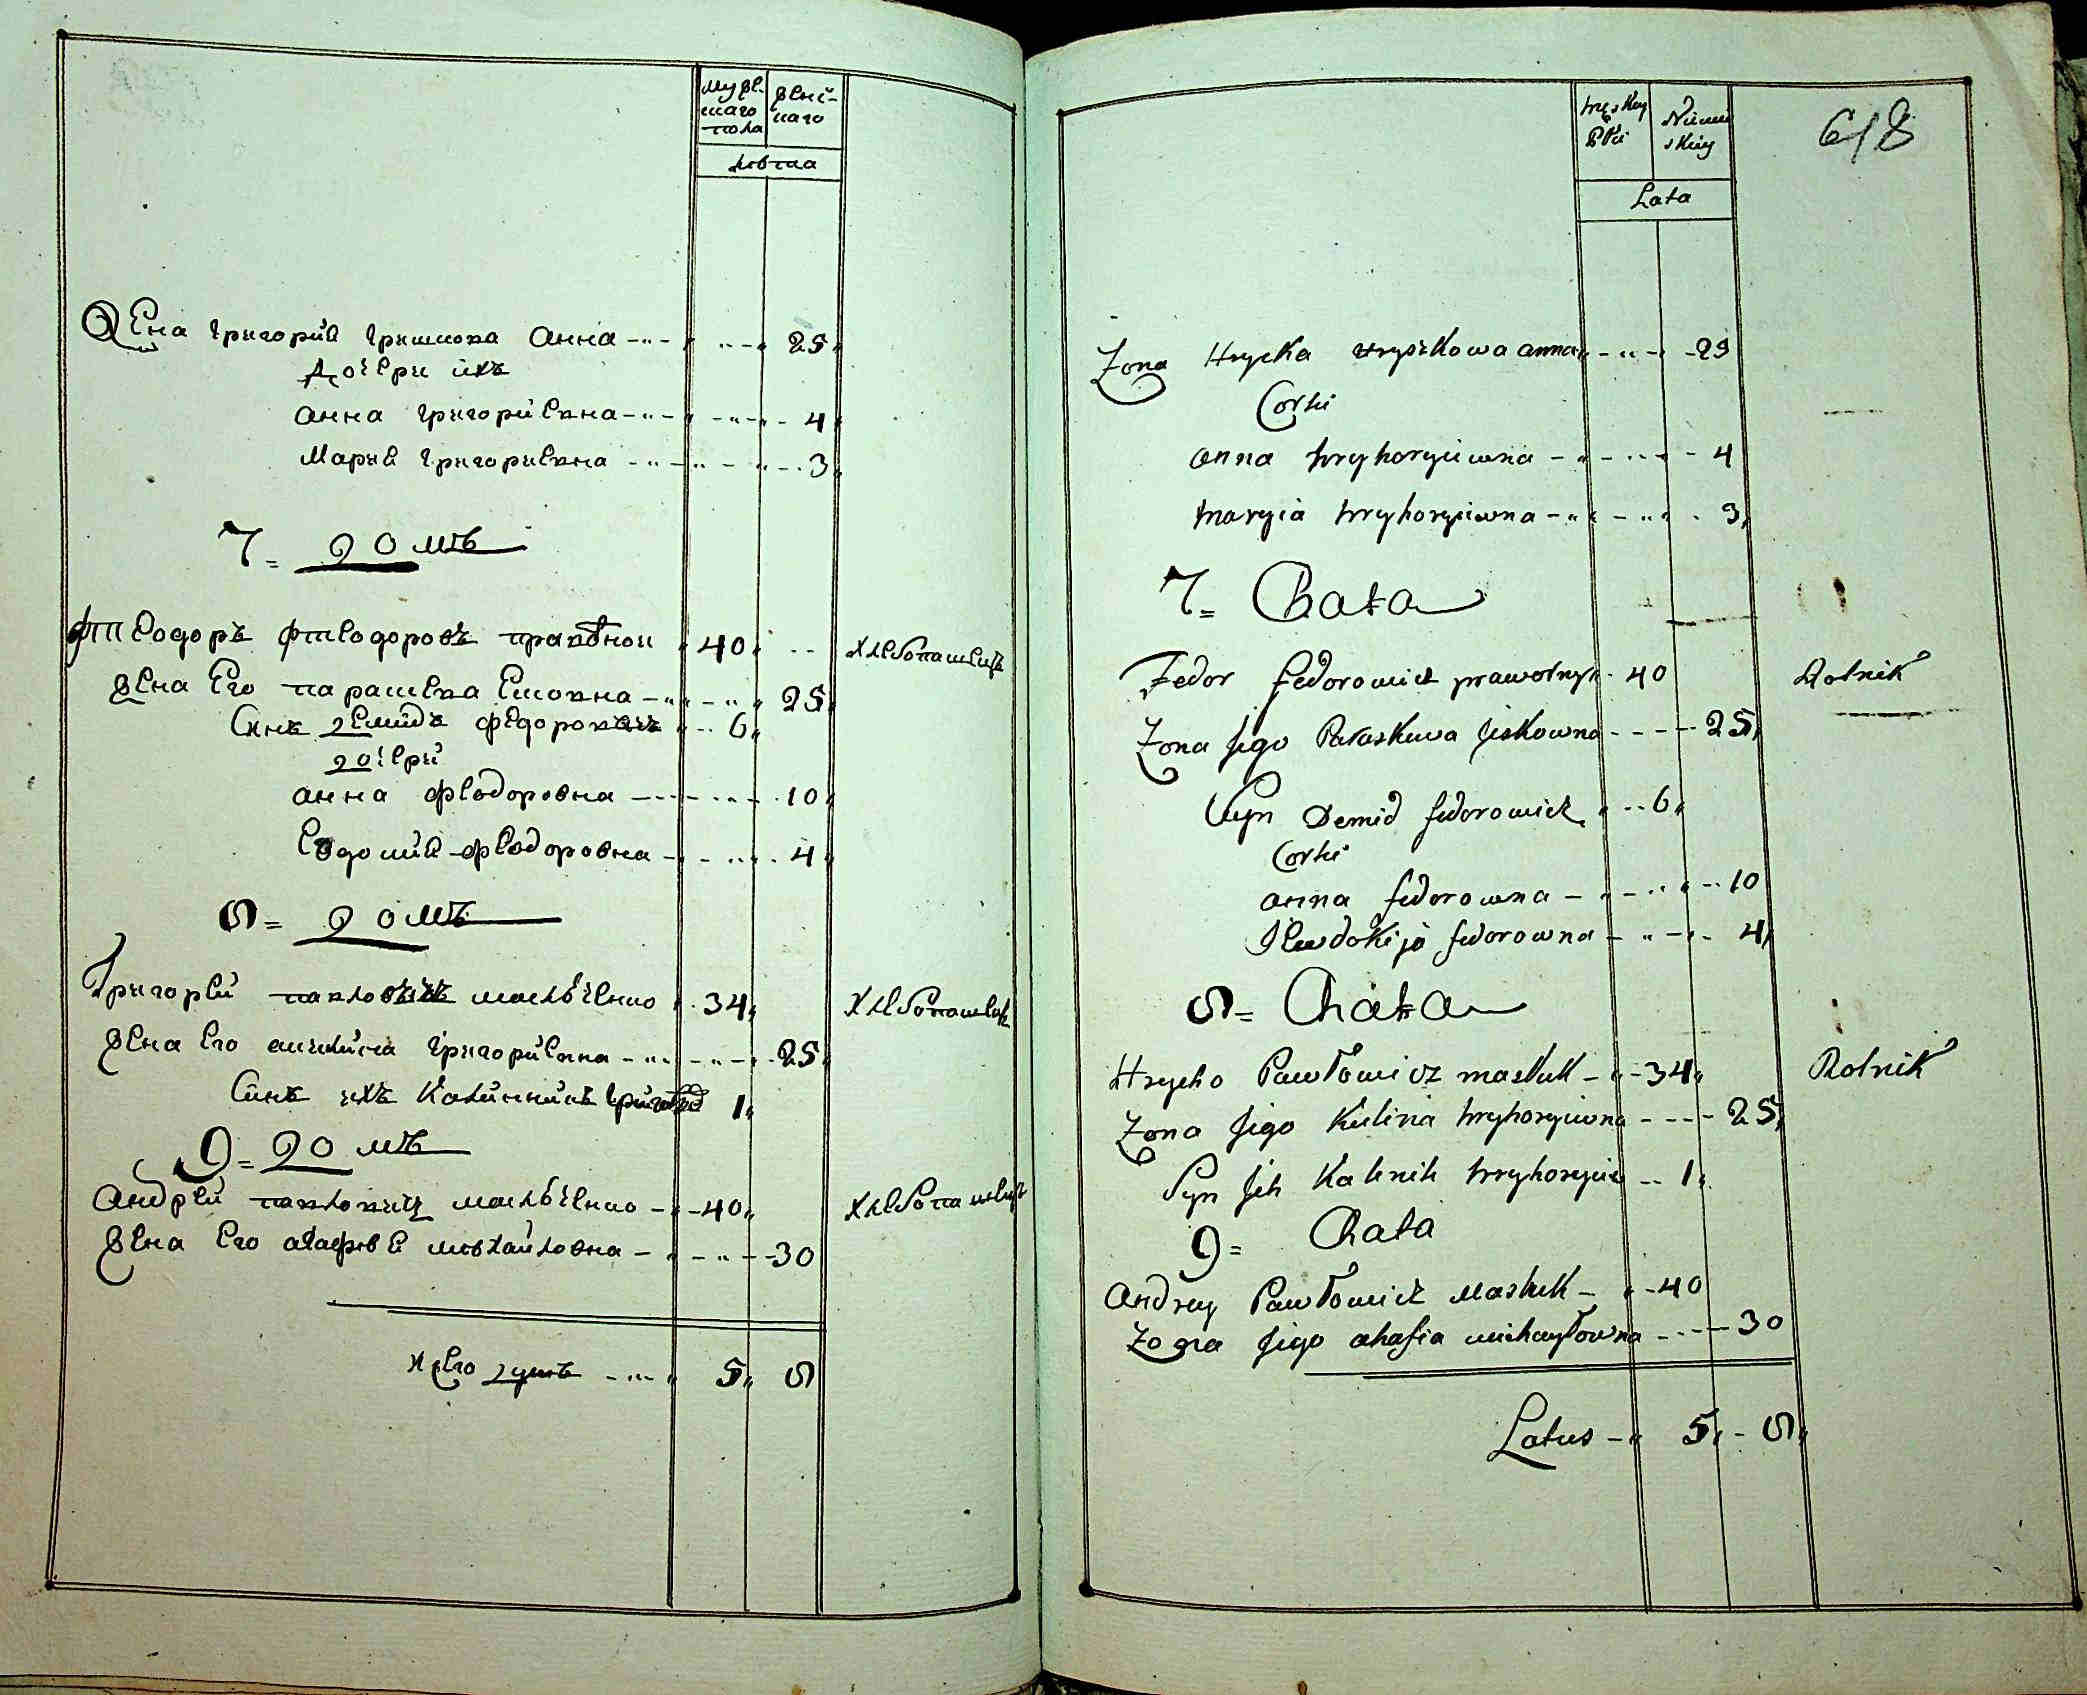 муже- женс-
скаго каго
пола
лѣта
Жена Григорія Гришкова Анна 25
Дочери ихъ
Анна Григоріевна 4
Марія Григоріевна 3
7= домъ
Фтеодоръ Фтеодоровъ 40 хлебопашецъ
Жена Его Парасева 25
Синъ Демидъ Федоровичъ 6
дочери
Анна Феодоровна 10
Евдокия Феодоровна 4
8= домъ
Григорей Павловичъ 34 хлебопашецъ
Жена Его Акилина Григоріевна 25
Синъ ихъ Калинникъ 1
9= домъ
Андрей Павловичъ 40 хлебопашецъ
Жена Его Агафія Михайловна 30
всего душъ 5 8
618
męzkiey Niewie
Płci skiey
Lata
Zona Hrycka Hryszkowa anna 25
Corki
anna hryhoryiewna 4
maryia hryhoryiewna 3
7= Chata
Fedor fedorowicz prawotnyi 40 Rolnik
Zona jego Paraskewa Jeskowna 25
Syn Demid fedorowicz 6
Corki
anna fedorowna 10
Jewdokija fedorowna 4
8= Chata
Hrycko Pawłowicz masluk 34 Rolnik
Zona jego Kulina hryhoryiewna 25
Syn jch Kalenik hryhoryiew 1
9= Chata
Andrey Pawłowicz Masluk 40
Zona jego ahafia michayłowna 30
Latus 5 8